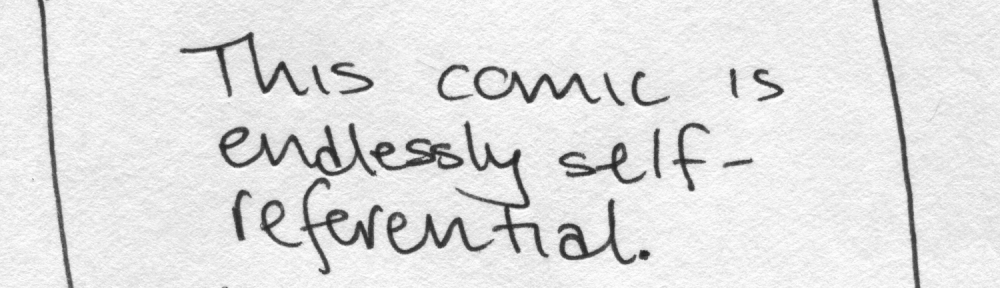 This comic is
endlessly self-
referential.